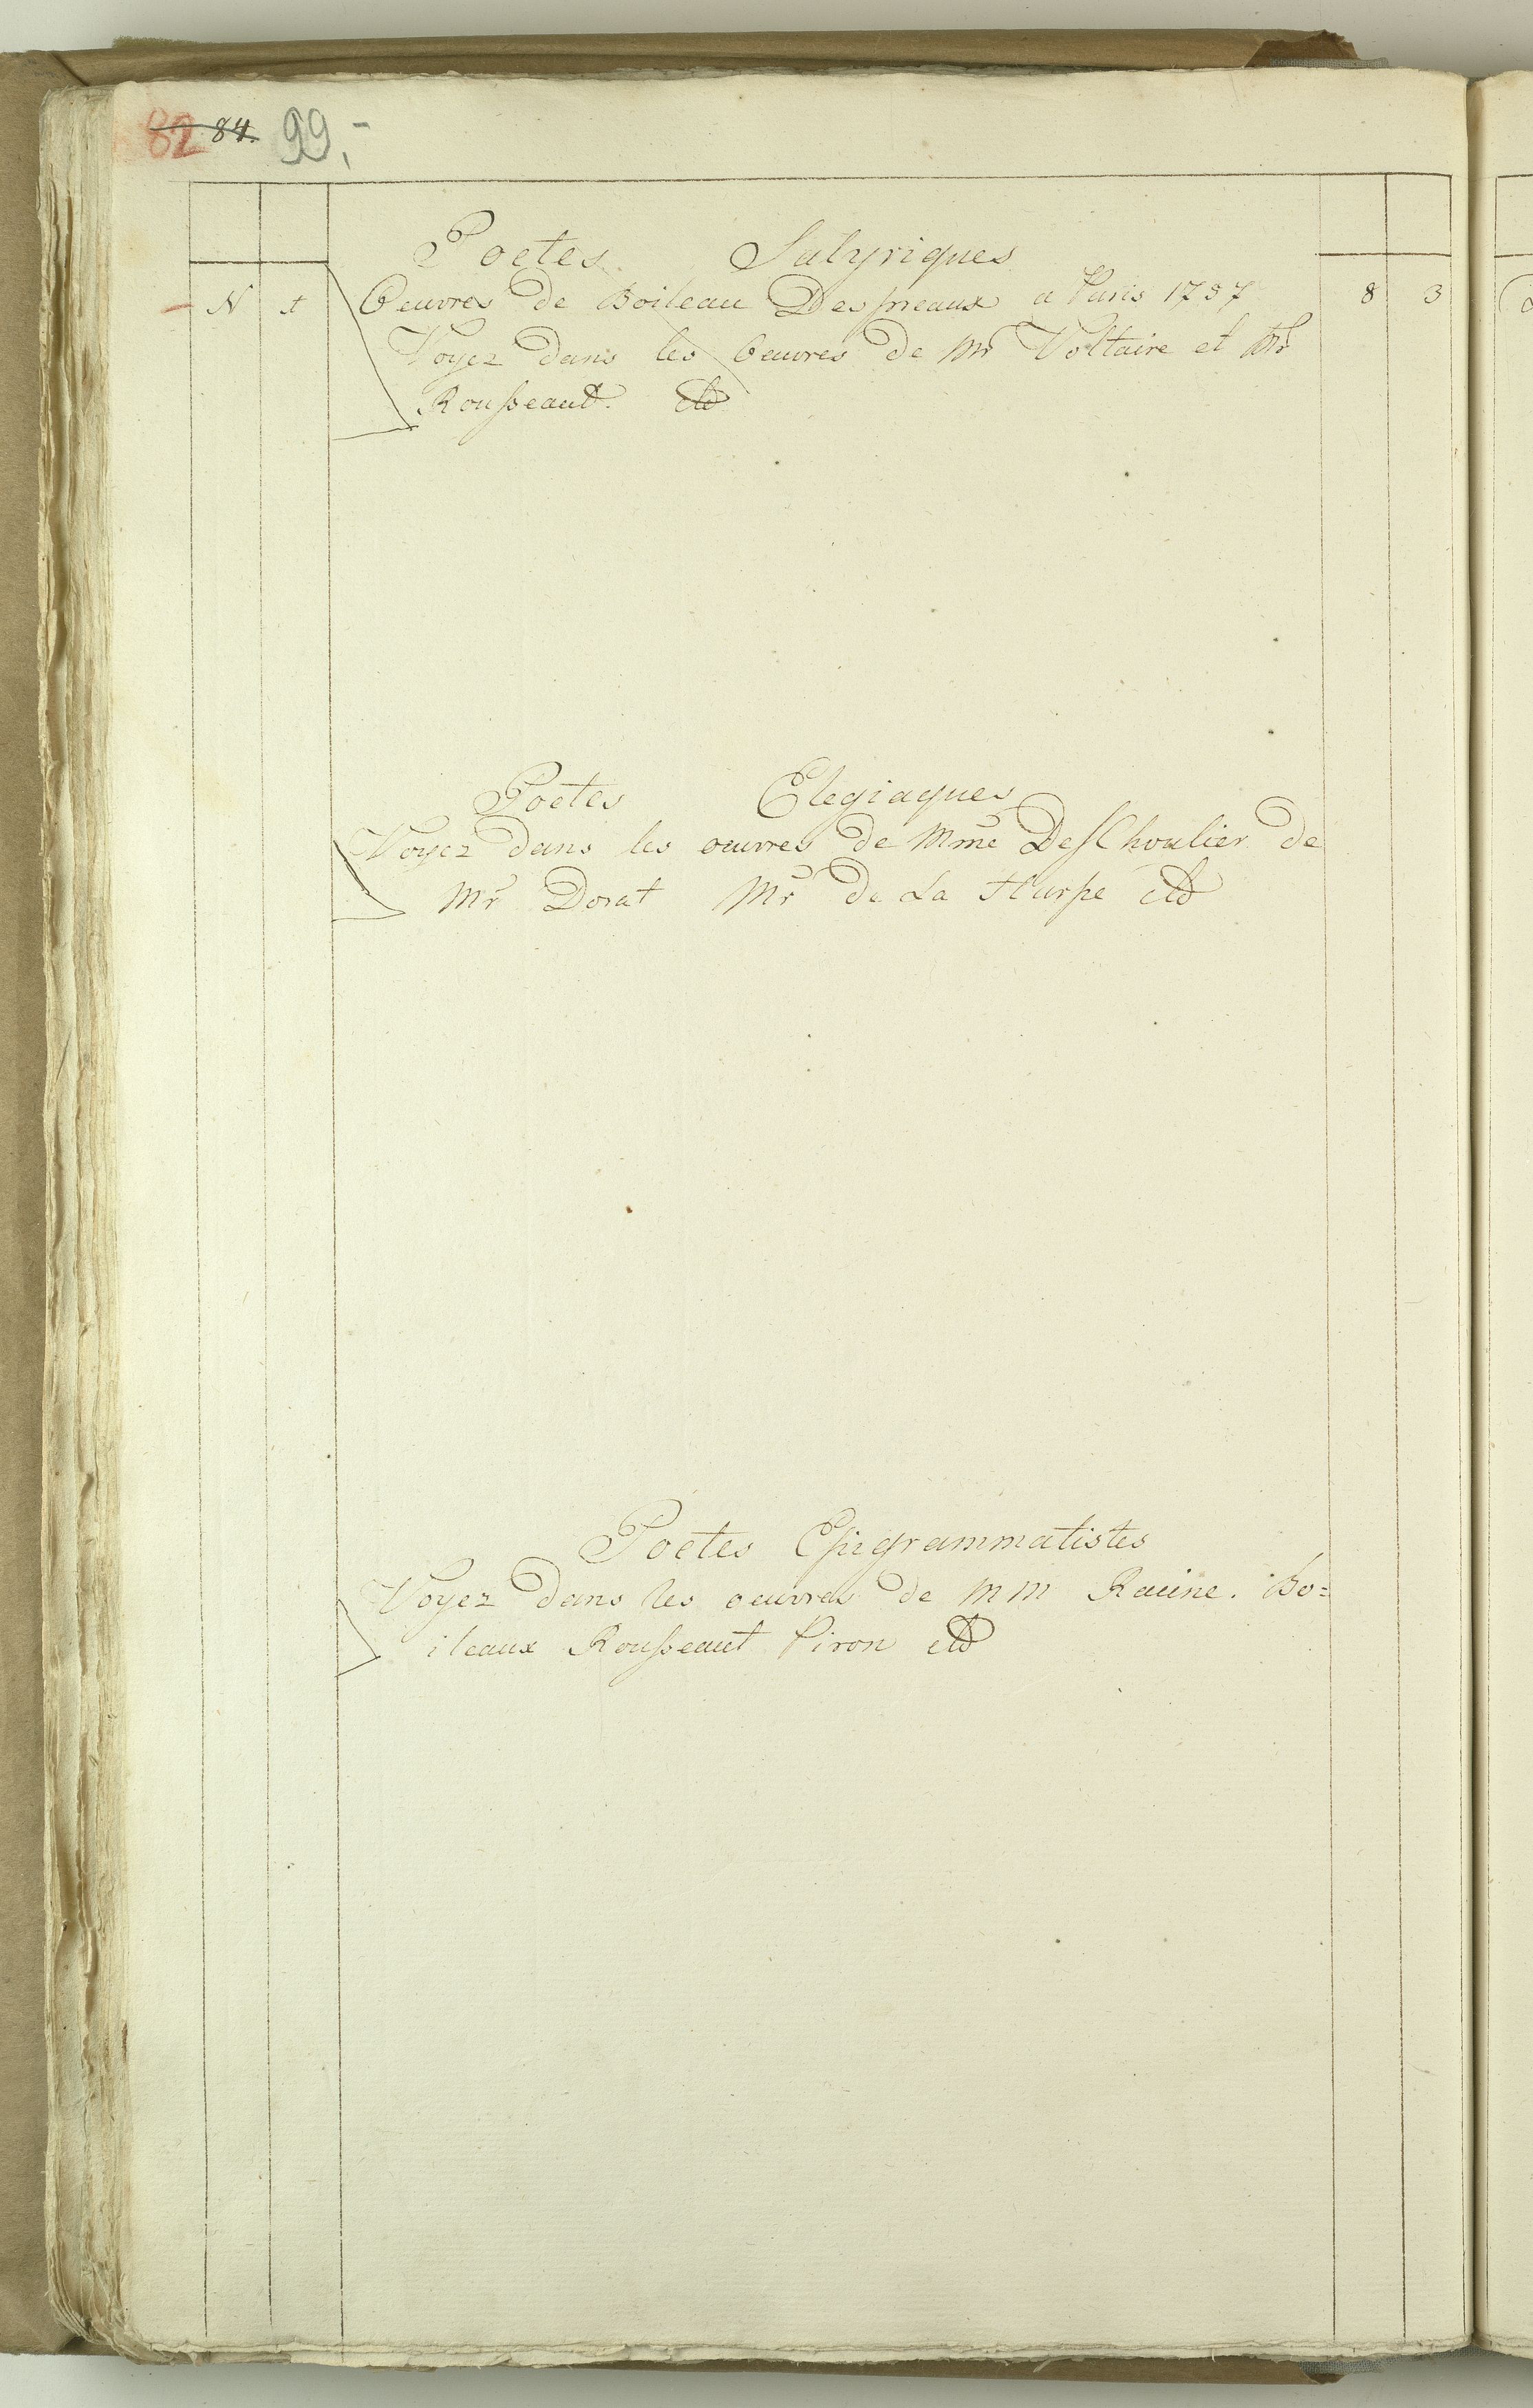 82 84. 99,-
Poetes Satyriques
N 1 Oeuvres de Boileau Despreaux a Paris 1757 8 3
Voyez dans les Oeuvres de Mr Voltaire et Mr
Rousseaut. etc
Poetes Elegiaques
Voyez dans les oeuvres de Mme DesChoulier de
Mr Dorat Mr de La Harpe etc
Poetes Epigrammatistes
Voyez dans les oeuvres de MM Racine. Bo=
ileaux Rousseaut Piron etc